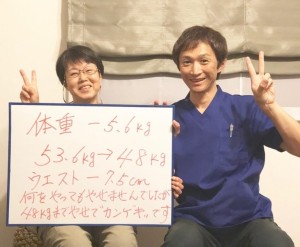 体重 -5.6kg
53.6kg→48kg
ウエスト -7.5cm
何をやってもやせませんでしたが
48kgまでやせて"カンゲキ"です